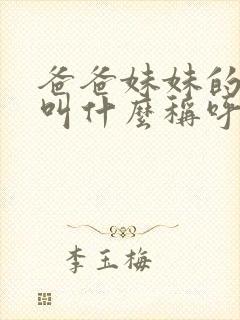 爸爸妹妹的
叫什麼稱呼
李玉梅